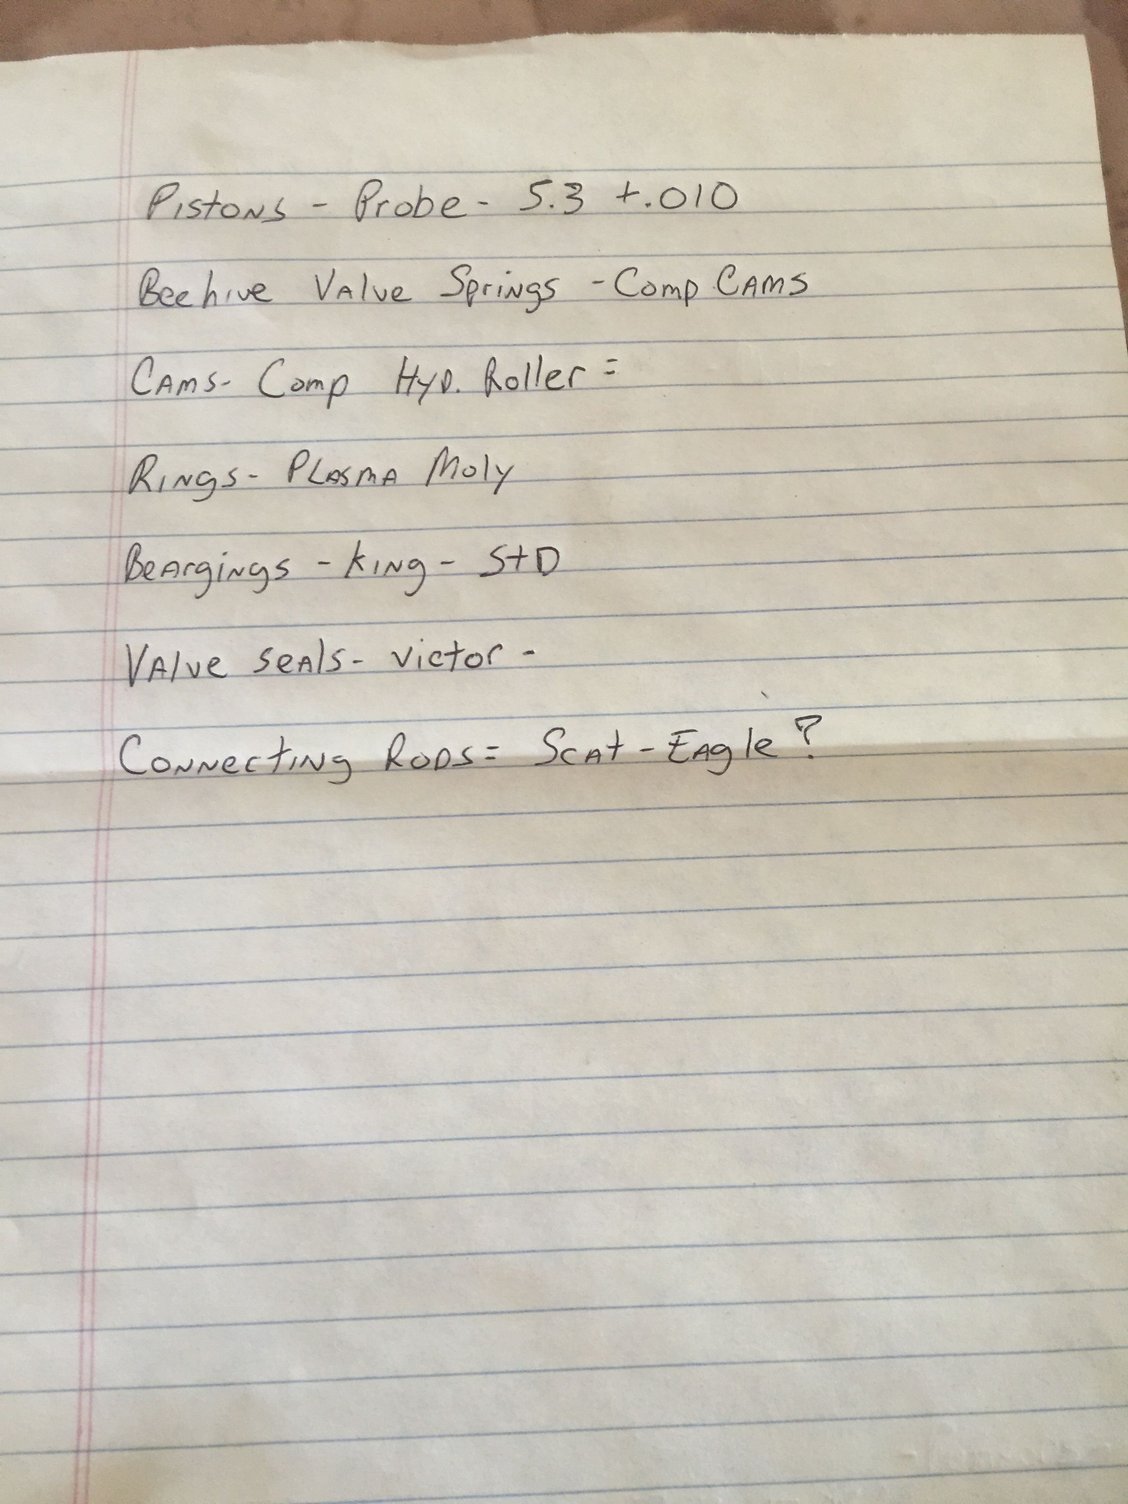 Pistons - Probe - 5.3 +.010
Beehive Valve Springs - Comp Cams
Cams - Comp Hyd. Roller =
Rings - Plasma Moly
Beargings - King - StD
Valve seals - victor -
Connecting Rods = Scat - Eagle?